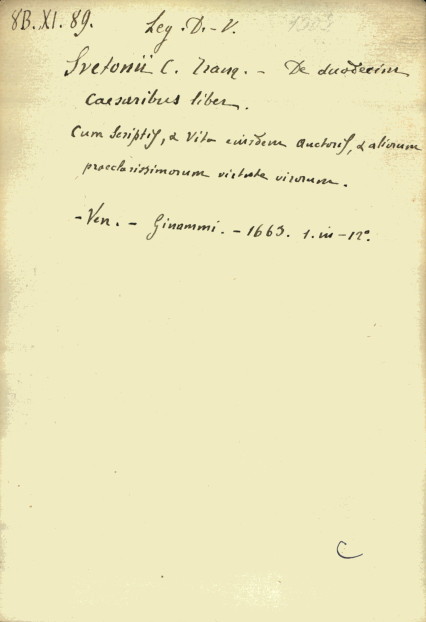 8B.XI.89. Leg.D.-V.
Svetonii C. Tranq. - De duodecim
Caesaribus liber.
Cum Scriptis, & Vita eiusdem Auctoris, & aliorum
praeclarissimorum virtute virorum.
-Ven. - Ginammi. - 1663. 1. in - 12º.
C